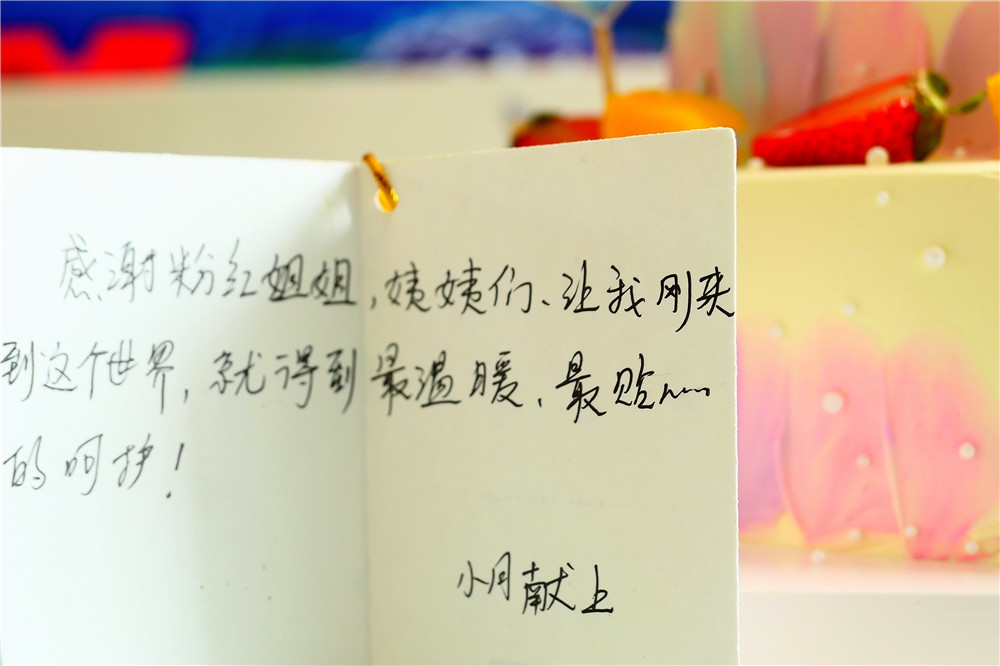 感谢粉红姐姐,姨姨们、让我刚来
到这个世界,就得到最温暖、最贴心
的呵护!
小月献上